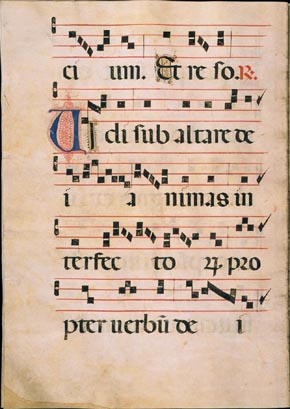 ci um. Et re so. ℟.
Vi di sub altare de
i a nimas in
terfec to ꝝ pro
pter uerbū de i